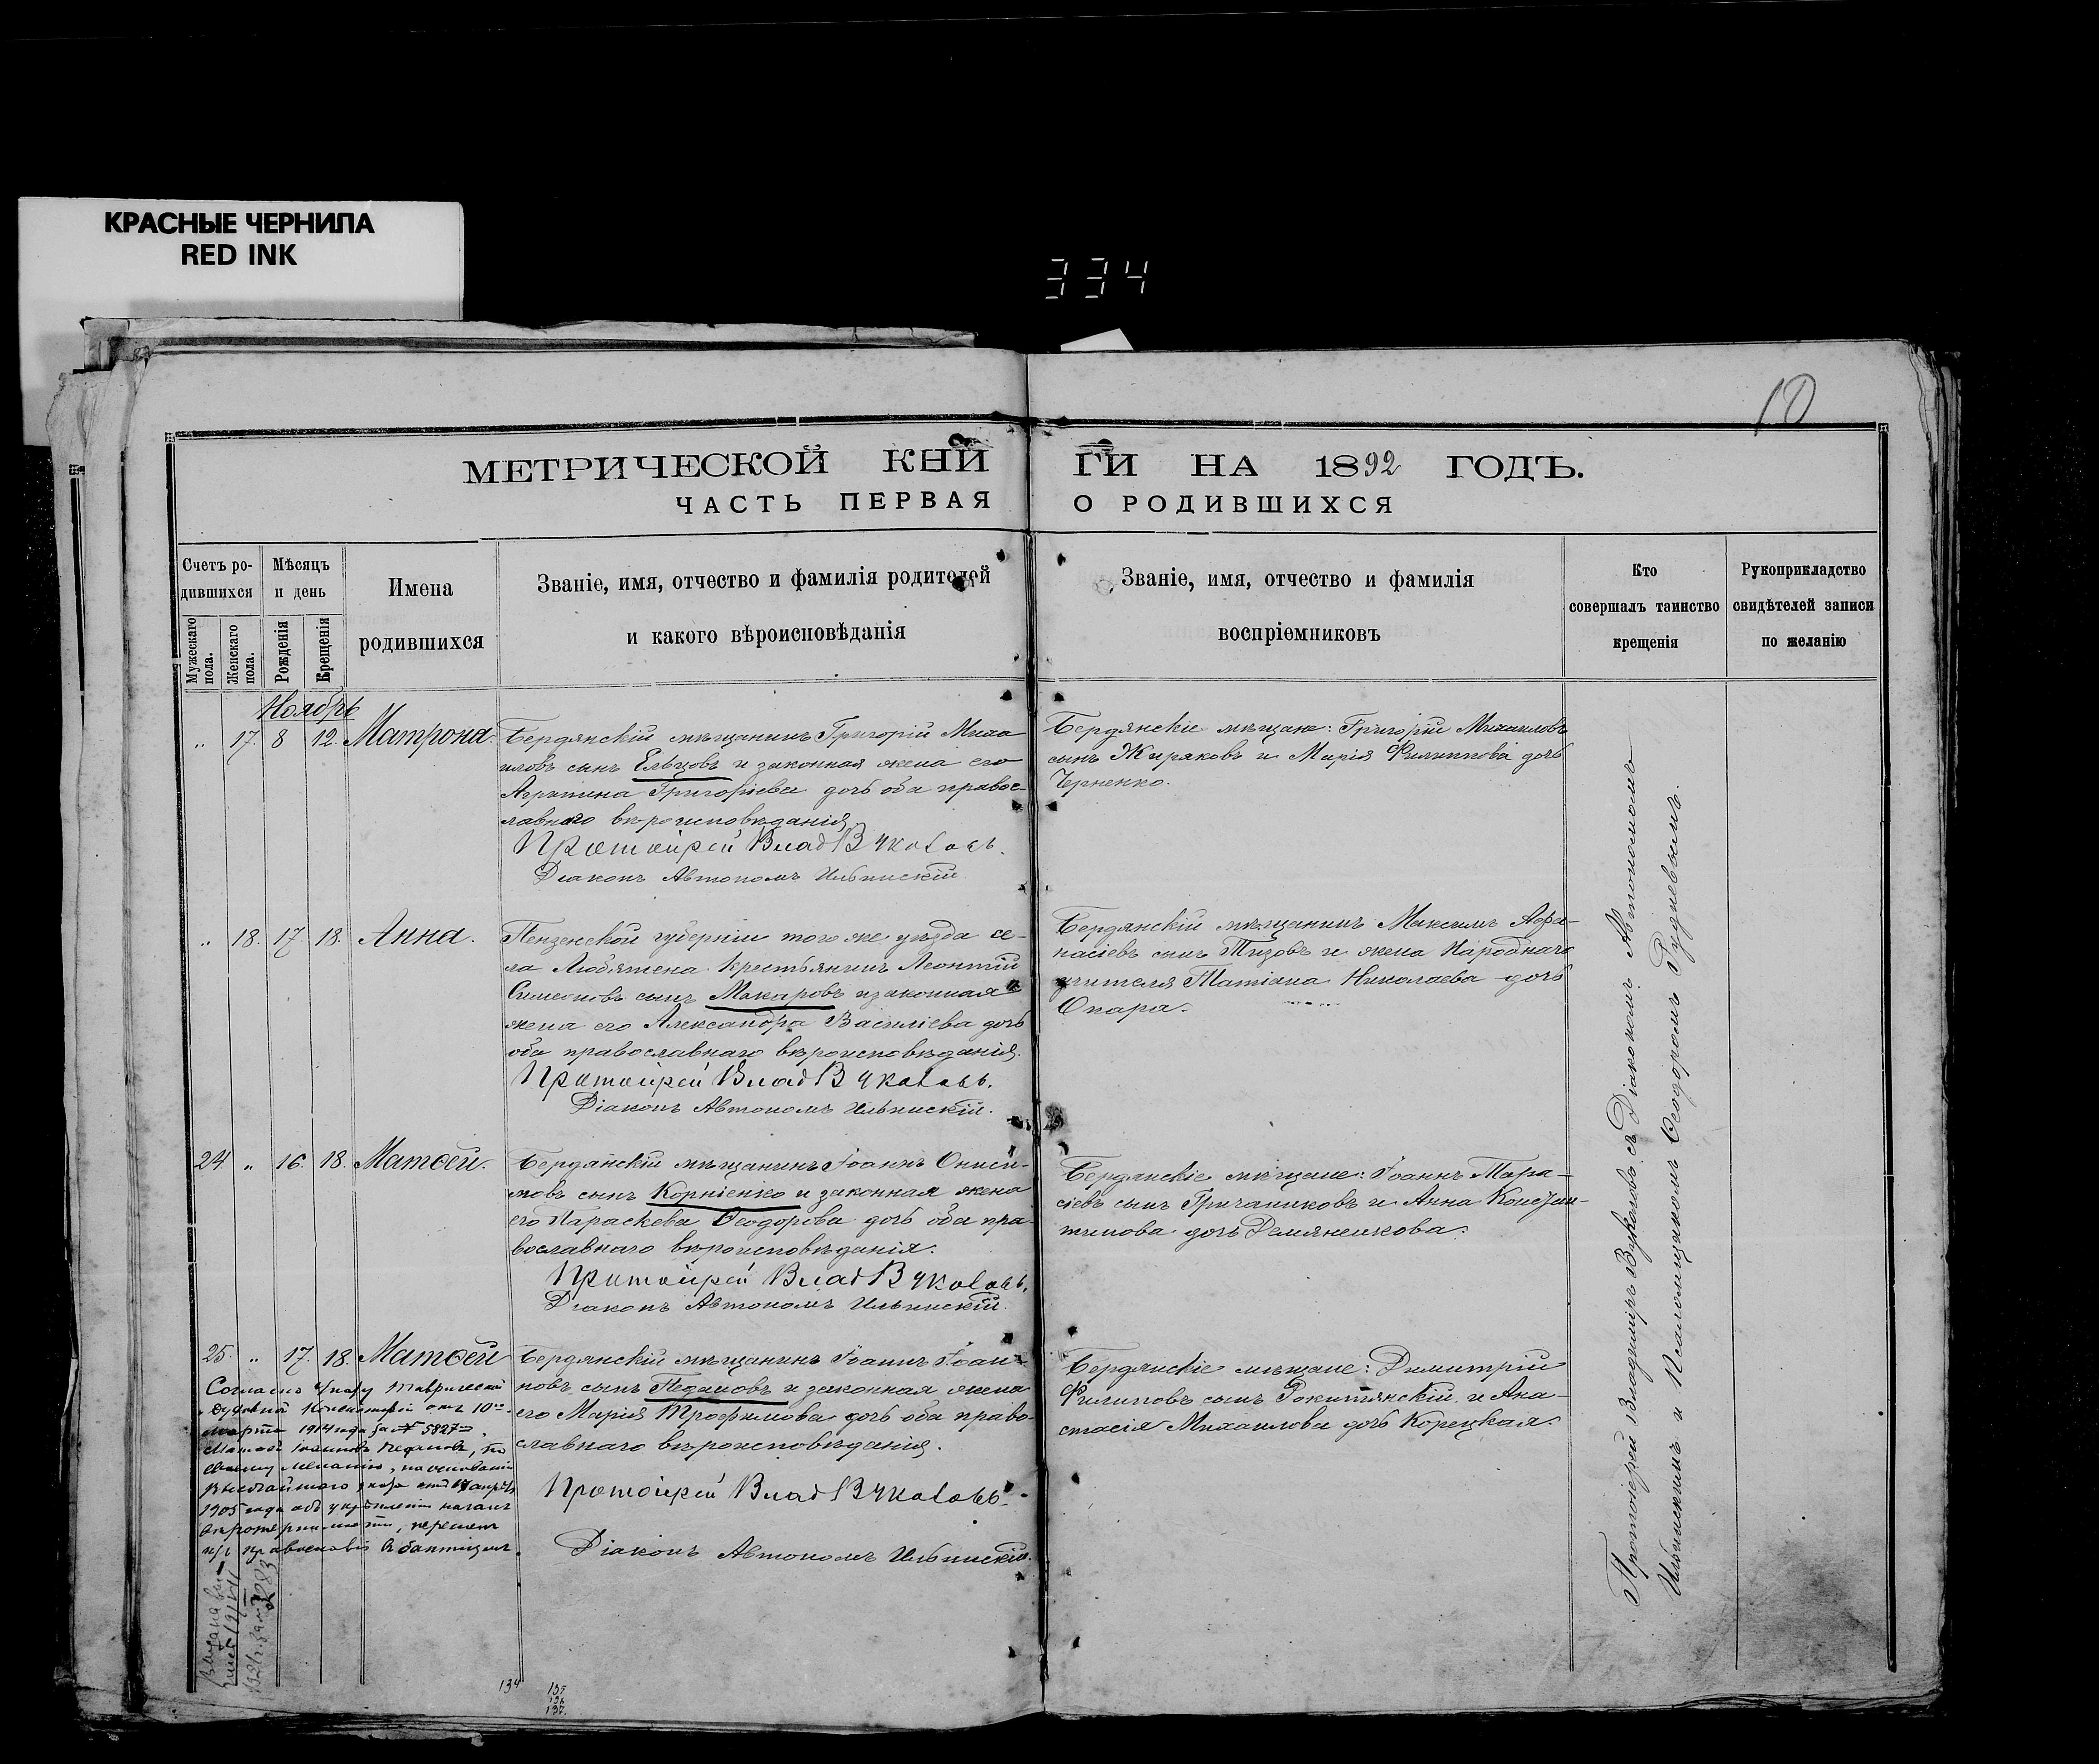 КРАСНЫЕ ЧЕРНИЛА
RED INK
334
10
МЕТРИЧЕСКОЙ КНИ
ГИ НА 1892 ГОДЪ.
ЧАСТЬ ПЕРВАЯ
О РОДИВШИХСЯ
Счетъ ро-
дившихся
Мужескаго пола.
Женскаго пола.
Мѣсяцъ
и день
Рожденія
Крещенія
Имена
родившихся
Званіе, имя, отчество и фамилія родителей
и какого вѣроисповѣданія
Званіе, имя, отчество и фамилія
воспріемниковъ
Кто
совершалъ таинство
крещенія
Рукоприкладство
свидѣтелей записи
по желанію
Ноябрь
„ 17. 8 12. Матрона.
Бердянскій мѣщанинъ Григорій Миха
иловъ сынъ Ельцовъ и законная жена его
Агрипина Григоріева дочь оба правос-
лавнаго вѣроисповѣданія.
Протоіерей Влад Вуколовъ.
Діаконъ Автономъ Ильинскій
Бердянскіе мѣщане: Григорій Михаиловъ
сынъ Жиряковъ и Марія Филиппова дочь
Черненко.
„ 18. 17 18. Анна.
Пензенской губерніи того же уѣзда се-
ла Любятена крестьянинъ Леонтій
Симеоновъ сынъ Макаровъ и законная
жена его Александра Василіева дочь
оба православнаго вѣроисповѣданія.
Протоіерей Влад Вуколовъ.
Діаконъ Автономъ Ильинскій.
Бердянскій мѣщанинъ Максимъ Афа-
насіевъ сынъ Тизовъ и жена народнаго
учителя Татіана Николаева дочь
Опара.
24 „ 16. 18. Матѳей.
Бердянскій мѣщанинъ Іоаннъ Ониси-
мовъ сынъ Корніенко и законная жена
его Параскева Ѳеодорова дочь оба пра-
вославнаго вѣроисповѣданія.
Протоіерей Влад Вуколовъ.
Діаконъ Автономъ Ильинскій.
Бердянскіе мѣщане: Іоаннъ Тара-
сіевъ сынъ Гричаниковъ и Анна Констан-
тинова дочь Демяненкова.
25. „ 17. 18. Матѳей
Бердянскій мѣщанинъ Іоаннъ Іоан-
новъ сынъ Педановъ и законная жена
его Марія Трофимова дочь оба право-
славнаго вѣроисповѣданія.
Протоіерей Влад Вуколовъ.
Діаконъ Автономъ Ильинскій.
Бердянскіе мѣщане: Димитрій
Филиповъ сынъ Рокитянскій и Ана-
стасія Михаилова дочь Корецкая.
Согласно Указу Таврической
Духовной Консисторіи отъ 10го
марта 1914 года за № 5827
Матѳей Іоанновъ Педановъ, по
своему желанію, на основаніи
Высочайшаго указа отъ 17 апрѣля
1905 года объ укрѣпленіи началъ
вѣротерпимости, перешелъ
изъ православія въ баптизмъ.
Протоіерей Владимиръ Вуколовъ съ Діакономъ Автономомъ
Ильинскимъ и Псаломщикомъ Ѳеодоромъ Рудневымъ.
134
135
136
137.